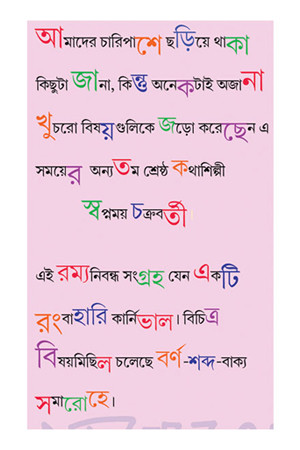 আমাদের চারিপাশে ছড়িয়ে থাকা
কিছুটা জানা, কিন্তু অনেকটাই অজানা
খুচরো বিষয়গুলিকে জড়ো করেছেন এ
সময়ের অন্যতম শ্রেষ্ঠ কথাশিল্পী
স্বপ্নময় চক্রবর্তী
এই রম্যনিবন্ধ সংগ্রহ যেন একটি
রংবাহারি কার্নিভাল। বিচিত্র
বিষয়মিছিল চলেছে বর্ণ-শব্দ-বাক্য
সমারোহে।